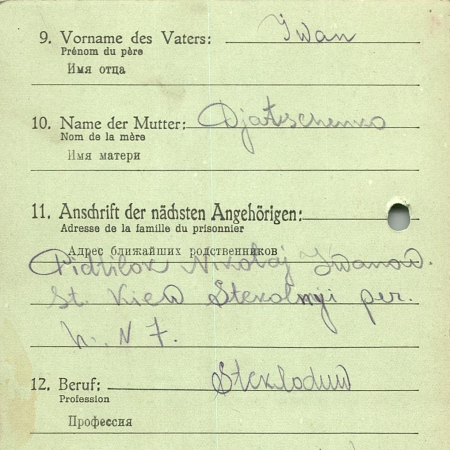 9. Vorname des Vaters: Iwan
Prénom du père
Имя отца
10. Name der Mutter: Djatschenko
Nom de la mère
Имя матери
11. Anschrift der nächsten Angehörigen:
Adresse de la famille du prisonnier
Адрес ближайших родственников
Pidtilok Nikolaj Iwanow.
St. Kiew Stekolnyi per.
h. N 7.
12. Beruf: Stekloduw
Profession
Профессия